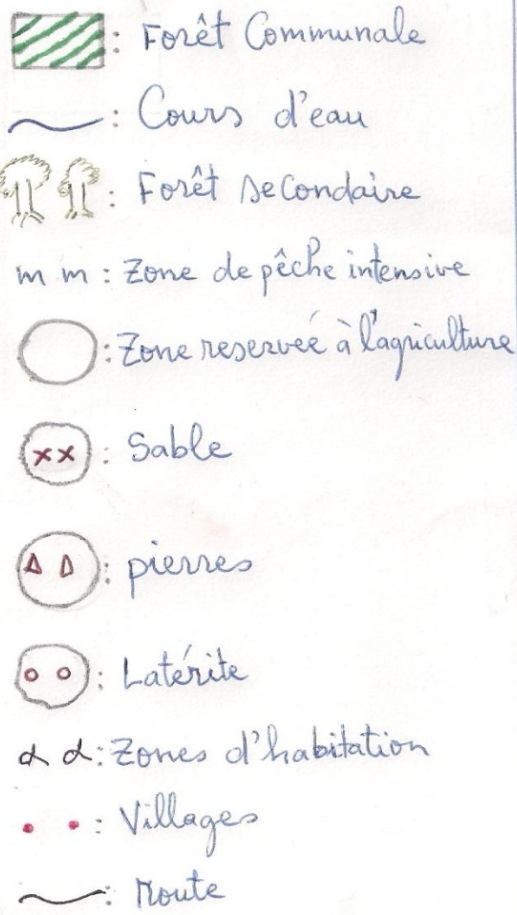 : Forêt Communale
: Cours d'eau
: Forêt secondaire
m m : Zone de pêche intensive
: Zone reservée à l'agriculture
xx : Sable
: pierres
: Latérite
α α : Zones d'habitation
: Villages
: Route